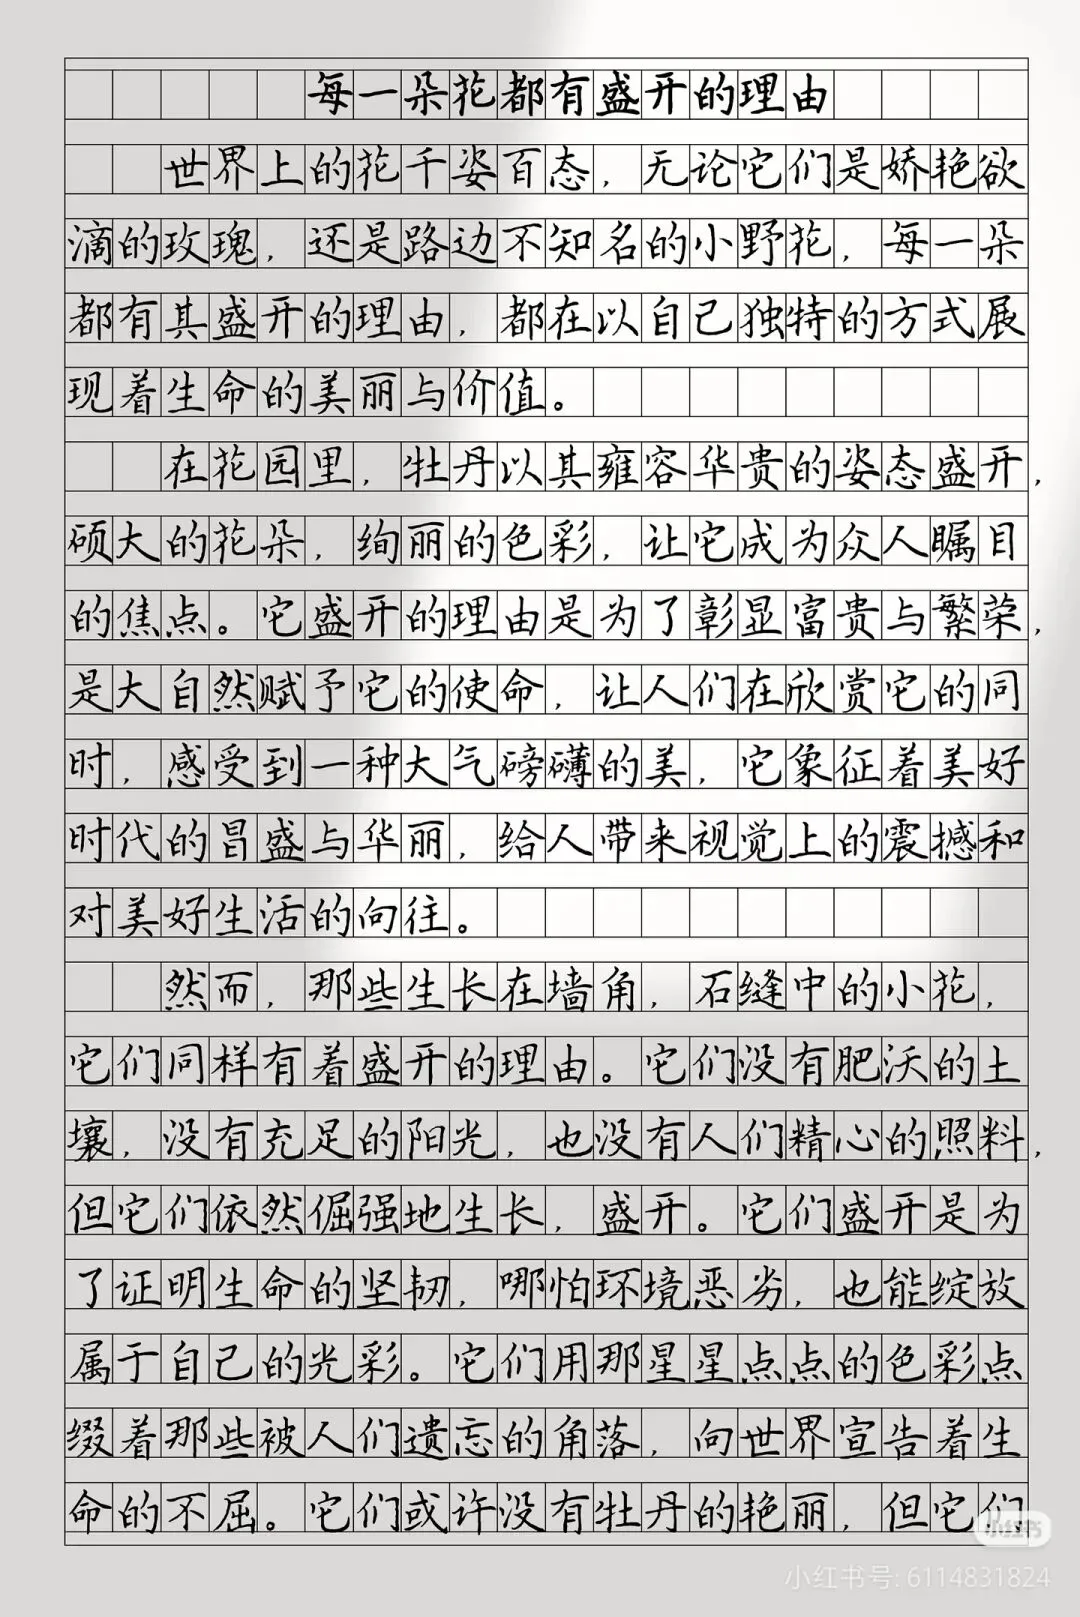 每一朵花都有盛开的理由
世界上的花千姿百态，无论它们是娇艳欲
滴的玫瑰，还是路边不知名的小野花，每一朵
都有其盛开的理由，都在以自己独特的方式展
现着生命的美丽与价值。
在花园里，牡丹以其雍容华贵的姿态盛开，
硕大的花朵，绚丽的色彩，让它成为众人瞩目
的焦点。它盛开的理由是为了彰显富贵与繁荣，
是大自然赋予它的使命，让人们在欣赏它的同
时，感受到一种大气磅礴的美，它象征着美好
时代的昌盛与华丽，给人带来视觉上的震撼和
对美好生活的向往。
然而，那些生长在墙角，石缝中的小花，
它们同样有着盛开的理由。它们没有肥沃的土
壤，没有充足的阳光，也没有人们精心的照料，
但它们依然倔强地生长，盛开。它们盛开是为
了证明生命的坚韧，哪怕环境恶劣，也能绽放
属于自己的光彩。它们用那星星点点的色彩点
缀着那些被人们遗忘的角落，向世界宣告着生
命的不屈。它们或许没有牡丹的艳丽，但它们
小红书
小红书号: 6114831824